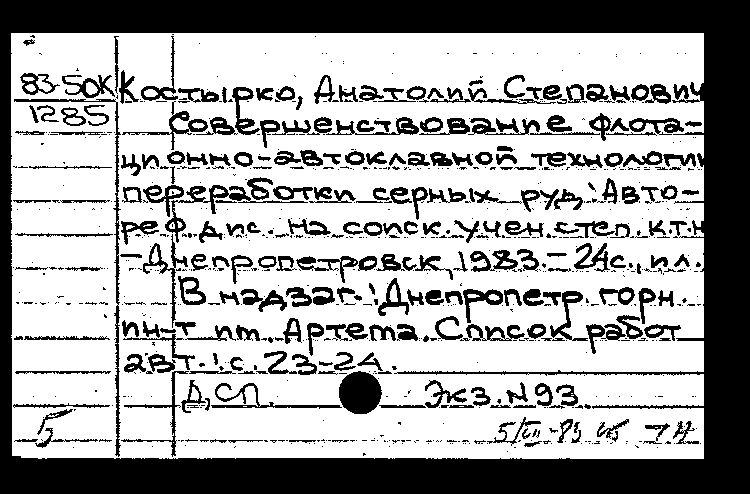 83-50К Костырко, Анатолий Степанович
1285 Совершенствование флота-
ционно-автоклавной технологии
переработки серных руд: Авто-
реф. дис. на соиск. учен. степ. к.т.н
-Днепропетровск, 1983.-24с., ил.
В надзаг.: Днепропетр. горн.
ин-т им. Артема. Список работ
авт.: с. 23-24.
ДСП. Экз. N93.
Б